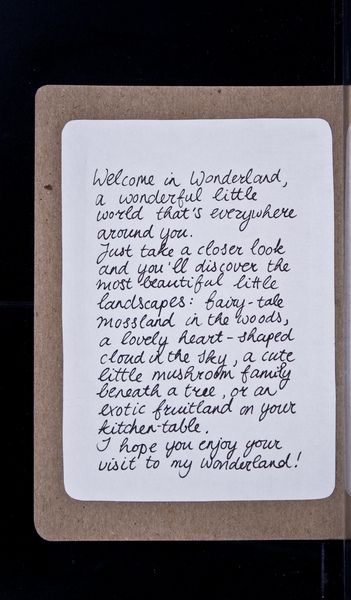 Welcome in Wonderland,
a wonderful little
world that's everywhere
around you.
Just take a closer look
and you'll discover the
most beautiful little
landscapes: fairy-tale
mossland in the woods,
a lovely heart-shaped
cloud in the sky, a cute
little mushroom family
beneath a tree, or an
exotic fruitland on your
kitchen-table.
I hope you enjoy your
visit to my wonderland!